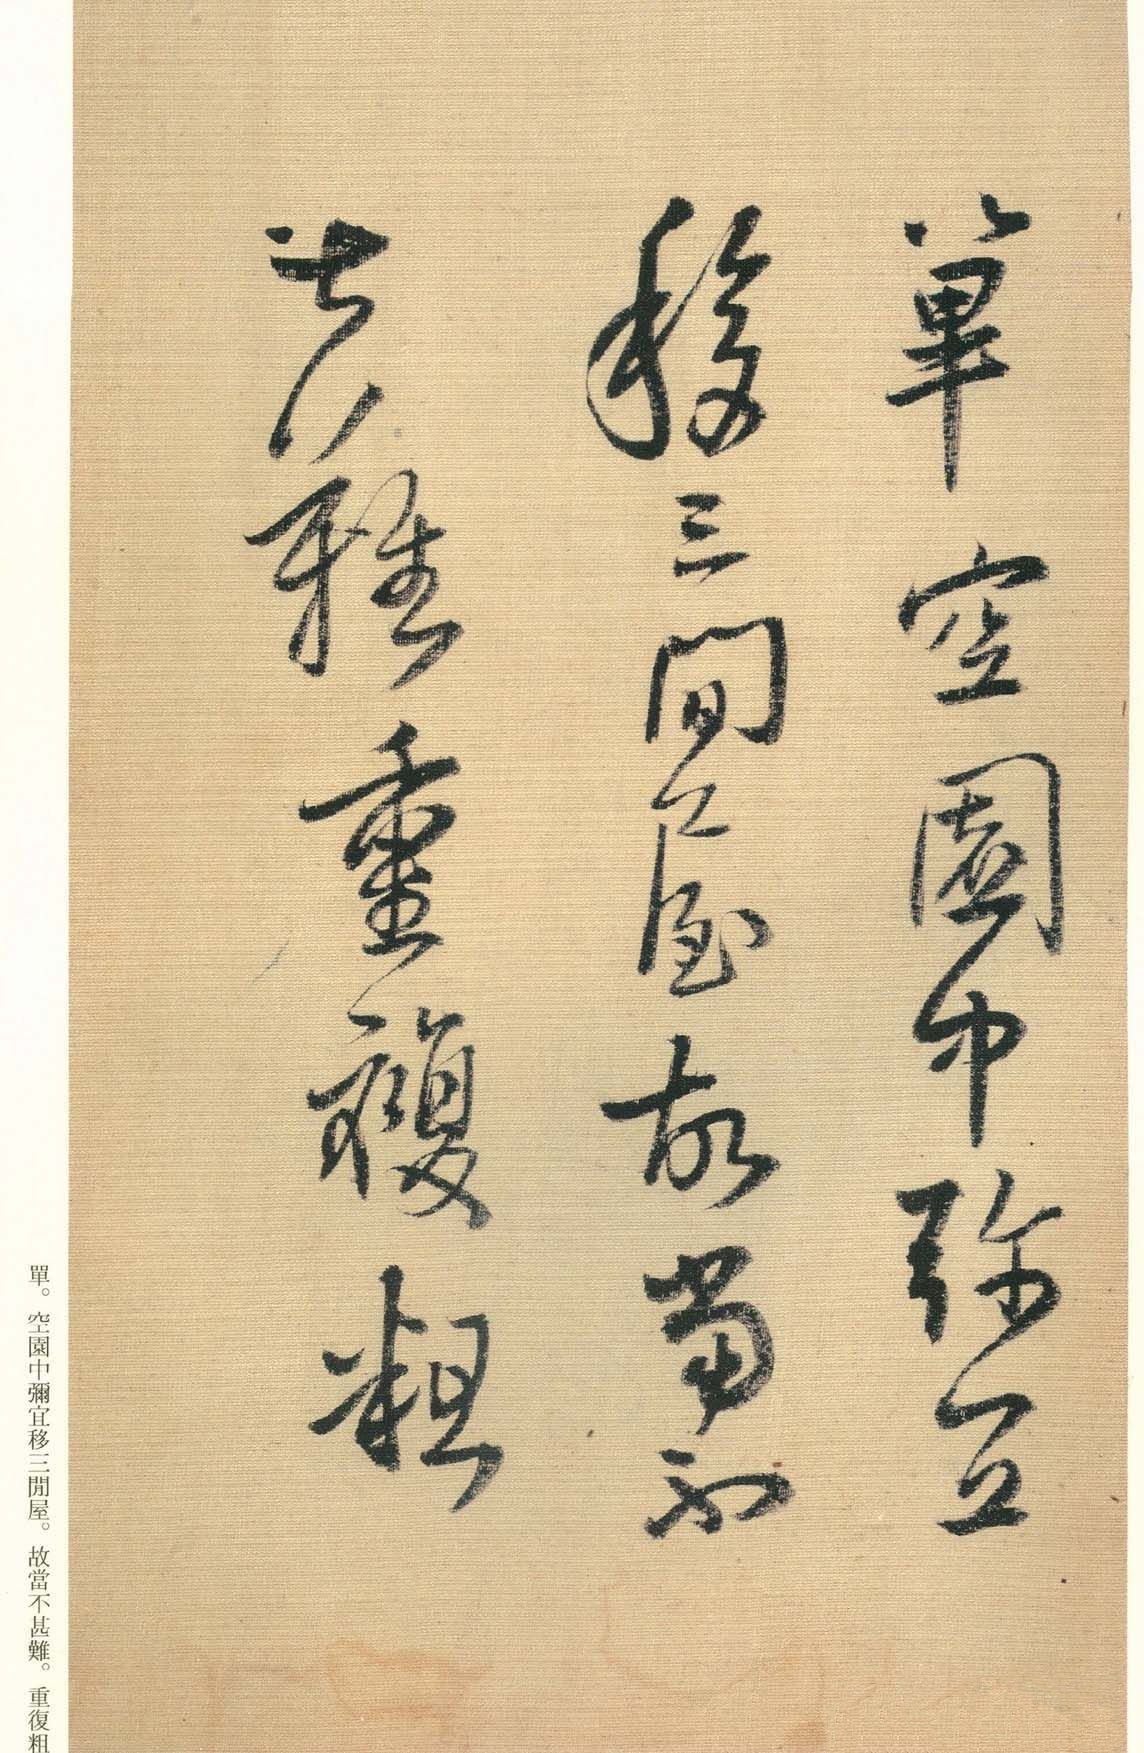 單空園中彌宜
移三間屋故當不
甚難重複粗
單。空園中彌宜移三閒屋。故當不甚難。重復粗